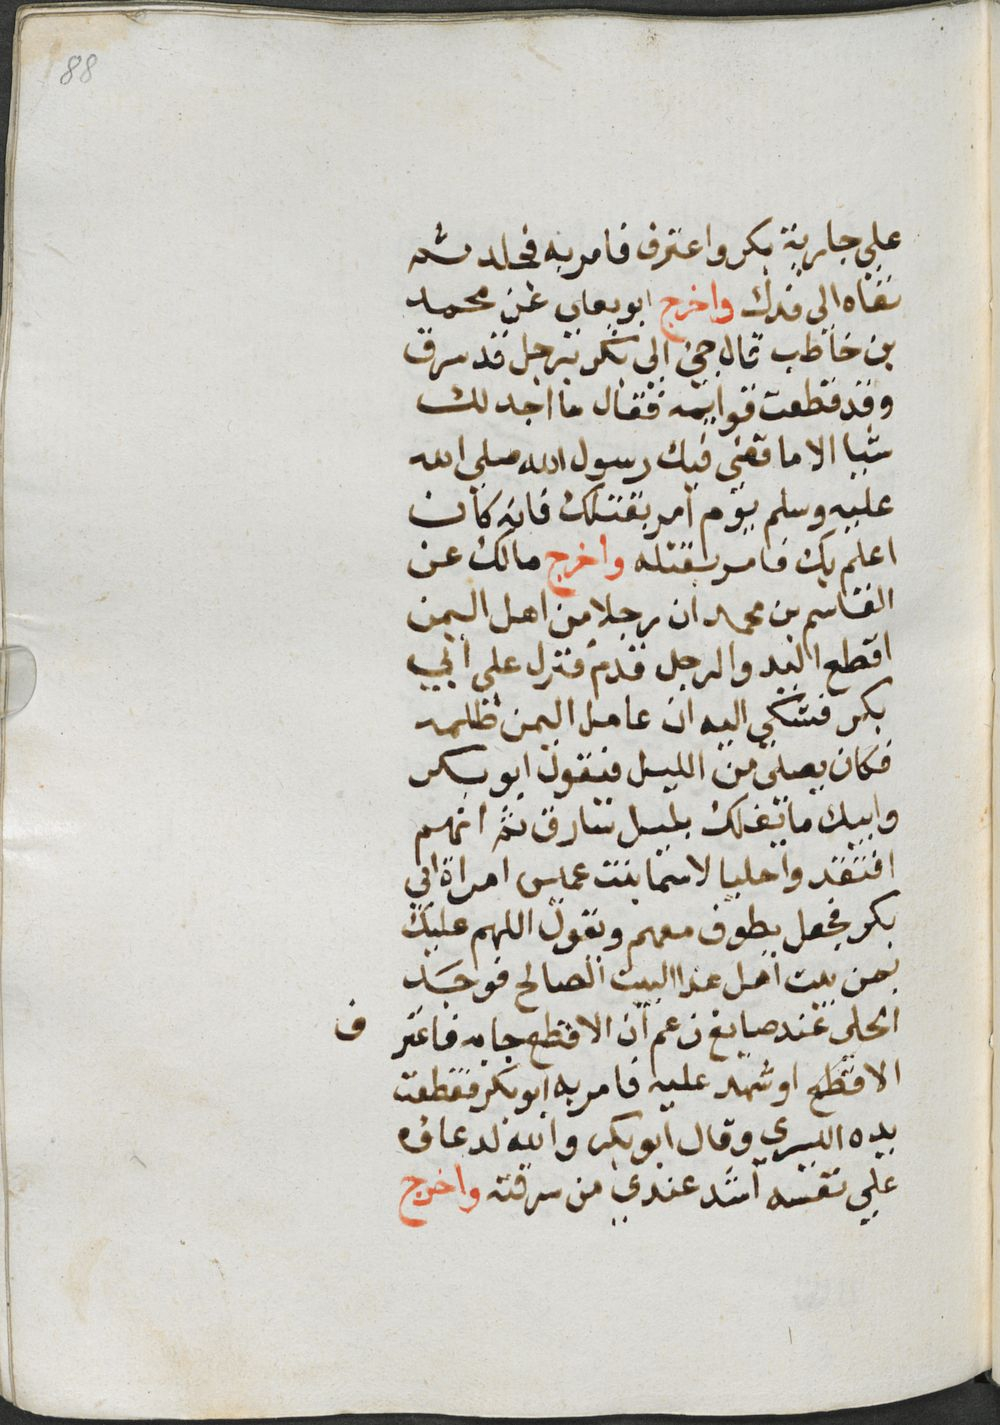 88
على جارية بكر واعترف فامر به فجلد ثم
نفاه الى فدك واخرج ابو يعلى عن محمد
بن خاطب قال جئ الى بكر برجل قد سرق
وقد قطعت قوايمه فقال ما اجد لك
شيا الا ما قضى فيك رسول الله صلى الله
عليه وسلم يوم امر بقتلك فانه كان
اعلم بك فامر بقتله واخرج مالك عن
القاسم بن محمد ان رجلا من اهل اليمن
اقطع اليد والرجل قدم فنزل على ابي
بكر فشكي اليه ان عامل اليمن ظلمه
فكان يصلى من الليل فيقول ابو بكر
وابيك ما ليلك بليل سارق ثم انهم
افتقدوا حليا لاسما بنت عميس امراة ابي
بكر فجعل يطوف معهم ويقول اللهم عليك
بمن بيت اهل هذا البيت الصالح فوجد
الحلى عند صايغ زعم ان الاقطع جا به فاعتر ف
الاقطع او شهد عليه فامر به ابو بكر فقطعت
يده اليسرى وقال ابو بكر والله لدعاؤه
على نفسه اشد عندي من سرقته واخرج